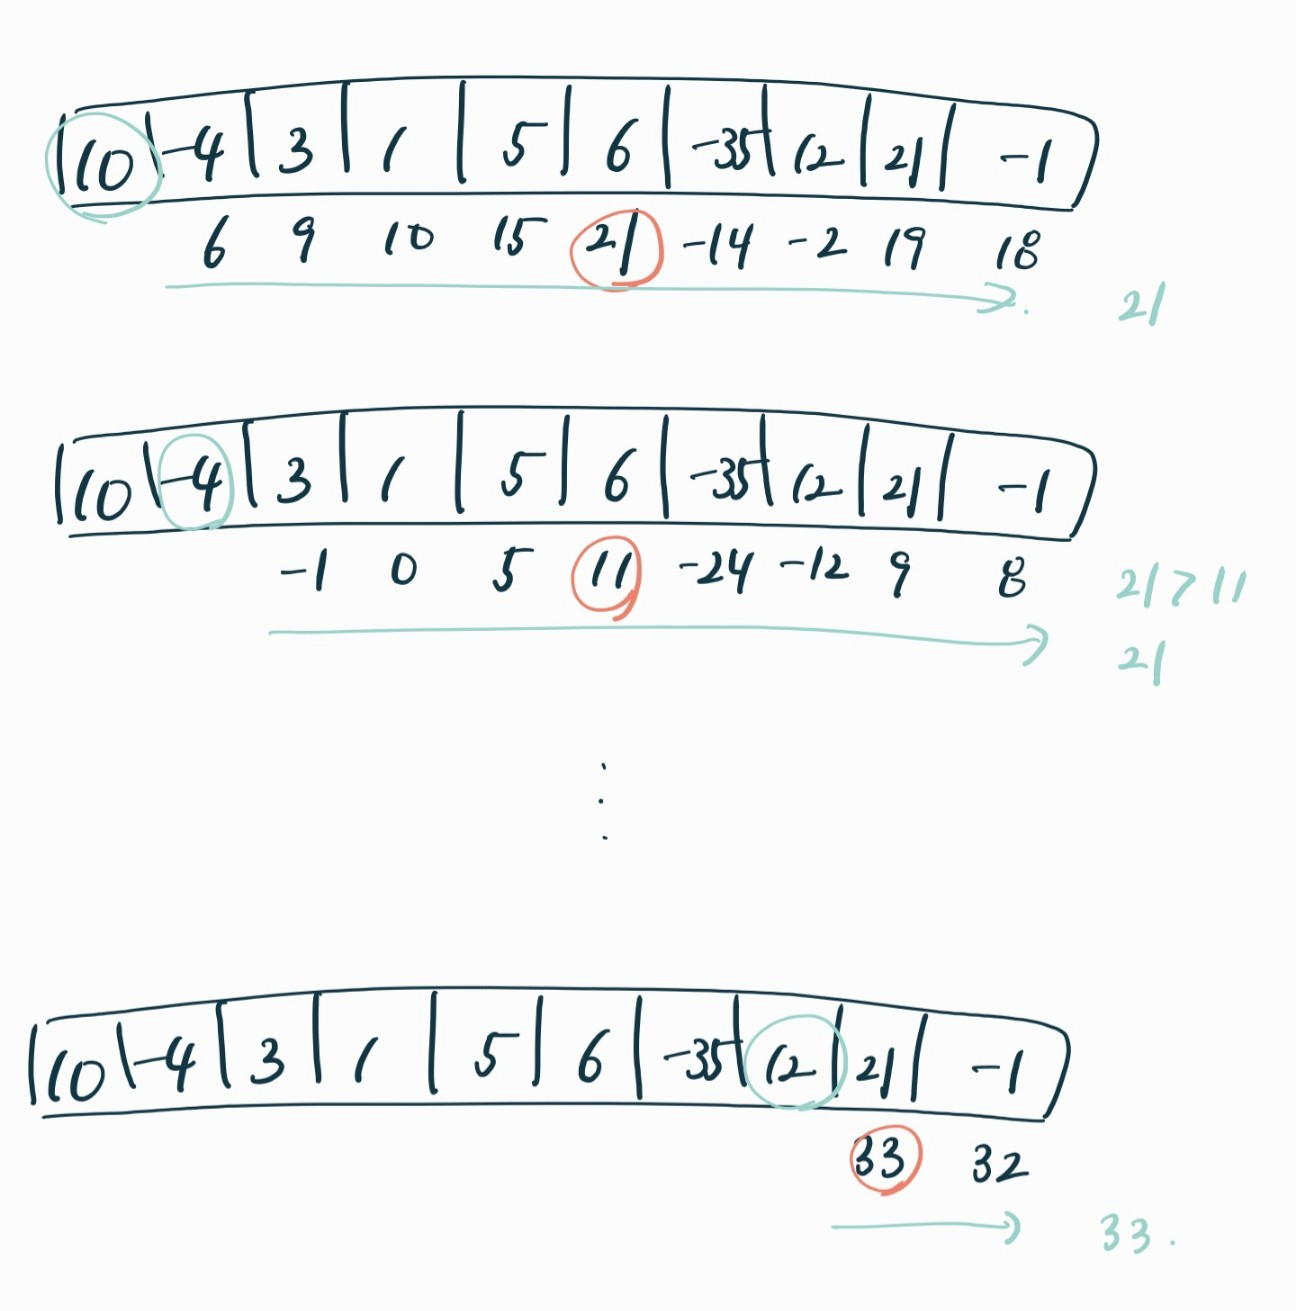 10 -4 3 1 5 6 -35 12 21 -1
6 9 10 15 21 -14 -2 19 18
21
10 -4 3 1 5 6 -35 12 21 -1
-1 0 5 11 -24 -12 9 8
21 > 11
21
10 -4 3 1 5 6 -35 12 21 -1
33 32
33.